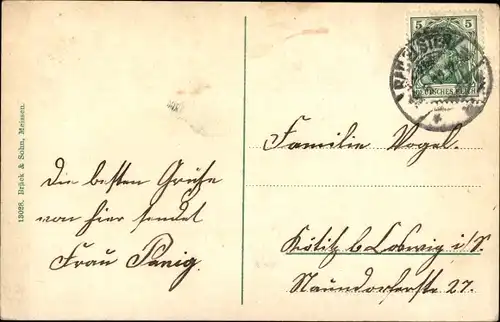 5 5
DEUTSCHES REICH
13028. Brück & Sohn, Meissen.
Die besten Grüße
von hier sendet
Frau Panig.
Familie Vogel.
Kötitz b Coswig i/S.
Naundorferstr 27.